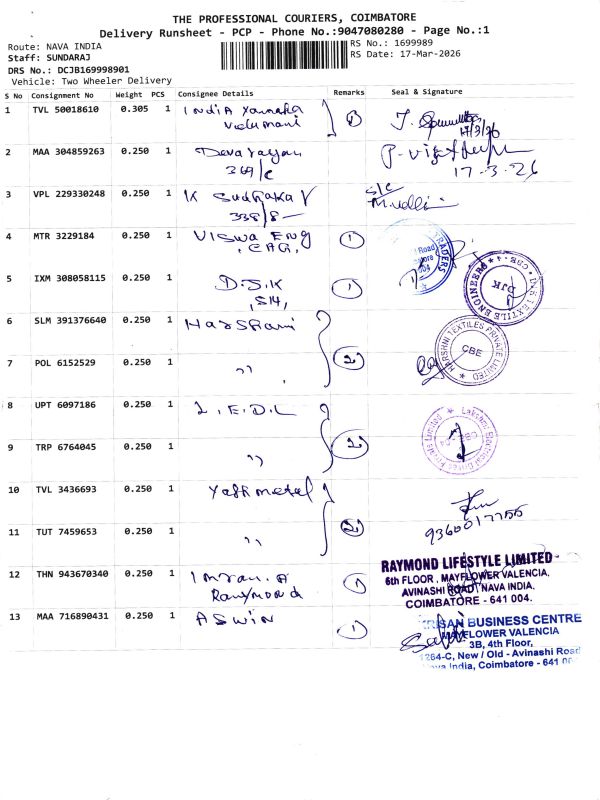 THE PROFESSIONAL COURIERS, COIMBATORE
Delivery Runsheet - PCP - Phone No.:9047080280 - Page No.:1
Route: NAVA INDIA
Staff: SUNDARAJ
DRS No.: DCJB169998901
Vehicle: Two Wheeler Delivery
RS No.: 1699989
RS Date: 17-Mar-2026
S No Consignment No Weight PCS Consignee Details Remarks Seal & Signature
1 TVL 50018610 0.305 1 India 1
17/3/26
2 MAA 304859263 0.250 1 Devarayan
369/c
17-3-26
3 VPL 229330248 0.250 1 K Sudhakar
338/8
4 MTR 3229184 0.250 1 Viswa Eng 1
TRADERS
5 IXM 308058115 0.250 1 D.J.K 1
TEXTILE ENGINEERS * CBE - 4 *
DJK
6 SLM 391376640 0.250 1 Harshani
HARSHNI TEXTILES PRIVATE LIMITED
CBE
7 POL 6152529 0.250 1 ,, 2
8 UPT 6097186 0.250 1 L.E.D.L
Lakshmi Electrical Drives Private Limited
9 TRP 6764045 0.250 1 ,, 2
10 TVL 3436693 0.250 1 Yashmetal
9360017755
11 TUT 7459653 0.250 1 ,, 2
12 THN 943670340 0.250 1 Imran. A 1
Raymond
RAYMOND LIFESTYLE LIMITED
6th FLOOR, MAYFLOWER VALENCIA,
AVINASHI ROAD, NAVA INDIA,
COIMBATORE - 641 004.
13 MAA 716890431 0.250 1 ASWIN 1
KRISAN BUSINESS CENTRE
MAYFLOWER VALENCIA
3B, 4th Floor,
1264-C, New / Old - Avinashi Road
Nava India, Coimbatore - 641